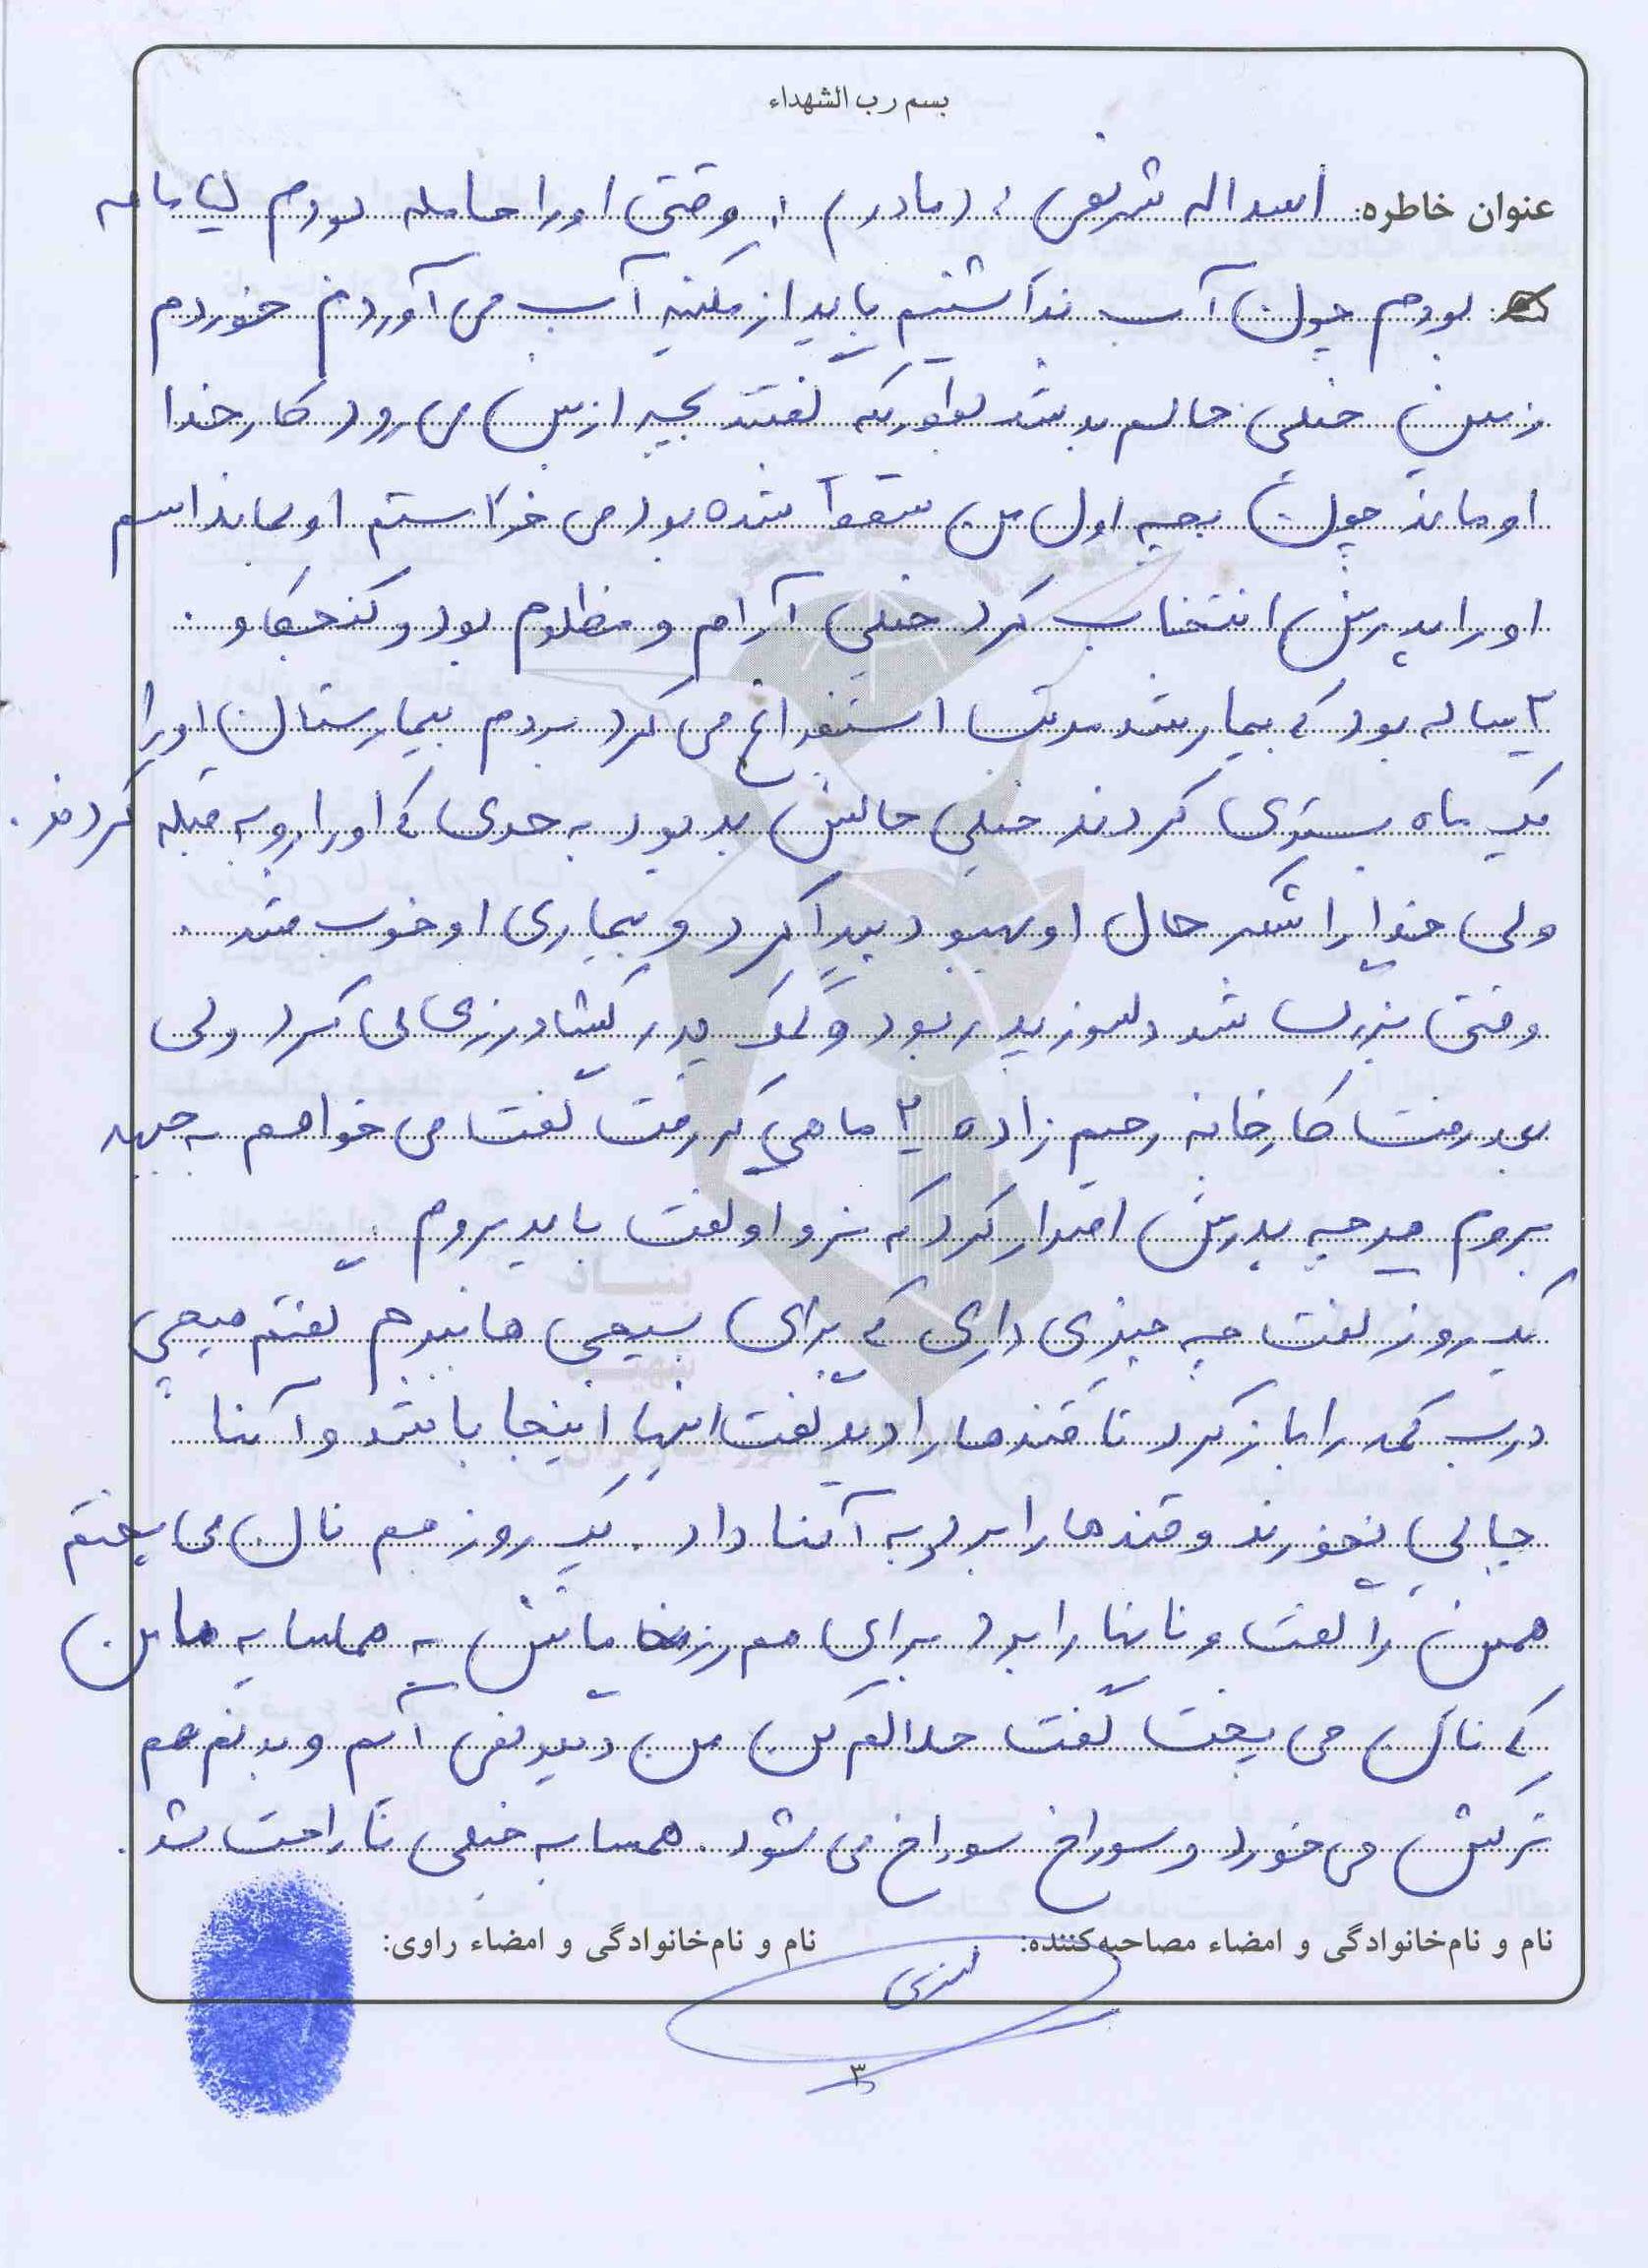 بسم رب الشهداء
عنوان خاطره: اسداله شریفی : (مادر) : وقتی او را حامله بودم ماهه
بودم چون آب نداشتیم باید از مکینه آب می آوردم خوردم
زمین خیلی حالم بد شد بطوریکه گفتند بچه از بین می رود کار خدا
او ماند چون بچه اول من سقط شده بود می خواستم او بماند اسم
او را پدرش انتخاب کرد خیلی آرام و مظلوم بود و کنجکاو .
۲ ساله بود که بیمار شد مدتها استفراغ می کرد بردم بیمارستان او را
یک ماه بستری کردند خیلی حالش بد بود به حدی که او را رو به قبله کردند .
ولی خدا را شکر حال او بهبود پیدا کرد و بیماری او خوب شد .
وقتی بزرگ شد دلسوز پدر بود و کمک پدر کشاورزی می کرد ولی
بعد رفت کارخانه رحیم زاده ۲ ماهی که رفت گفت می خواهم به جبهه
بروم هر چه پدرش اصرار کرد که نرو او گفت باید بروم .
یک روز گفت چه چیزی داری که برای بسیجی ها ببرم گفتم هیچی
درب کمد را باز کرد تا قندها را دید گفت اینها اینجا باشد و آنها
چایی نخورند و قندها را برد به آنها داد . یک روز هم نان می پختم
همین را گفت و نانها را برد برای هم رزمهایش به همسایه مان
که نان می پخت گفت حلالم کن من دیگر نمی آیم و بدنم هم
ترکش می خورد و سوراخ سوراخ می شود . همسایه خیلی ناراحت شد .
نام و نام‌خانوادگی و امضاء مصاحبه‌کننده: نام و نام‌خانوادگی و امضاء راوی:
۳